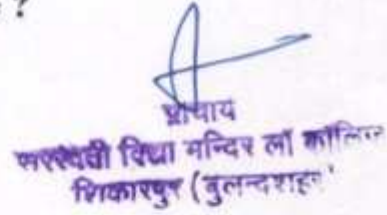 ?
प्राचार्य
सरस्वती विद्या मन्दिर लॉ कॉलिज
शिकारपुर (बुलन्दशहर)